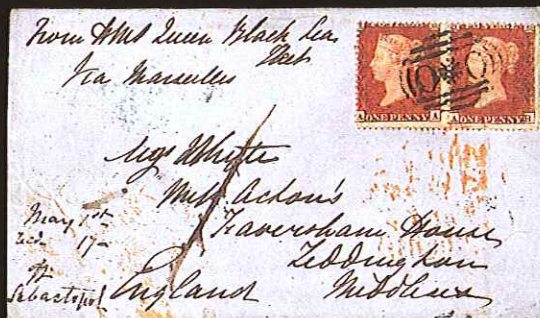 From HMS Queen Black Sea
Fleet
Via Marseilles
ONE PENNY
A ONE PENNY A
O O
Miss Whyte
Miss Acton's
Faversham House
Teddington
Middlesex
England
May 1st
Recd. 17
Off
Sebastopol